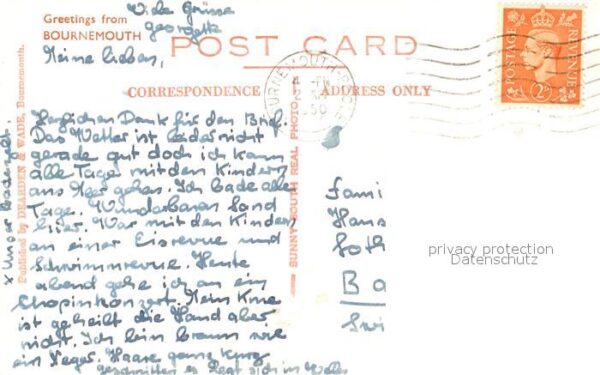 Viele Grüsse
Georgette
Greetings from
BOURNEMOUTH
POST CARD
Meine Lieben,
CORRESPONDENCE
ADDRESS ONLY
POSTAGE
REVENUE
2D
BOURNEMOUTH-POOLE
50
Herzlichen Dank für den Brief.
Das Wetter ist leider nicht
gerade gut doch ich kann
alle Tage mit den Kindern
ans Meer gehen. Ich bade alle
Tage. Wunderbaren Sand
hier. War mit den Kindern
an einer Eisrevue und
Schwimmrevue. Heute
abend gehe ich an ein
Chopinkonzert. Mein Knie
ist geheilt die Hand aber
nicht. Ich bin braun wie
ein Neger. Haare ganz kurz
geschnitten es legt sich in Wellen
x Unser Badezelt.
Published by DEARDEN & WADE, Bournemouth.
SUNNY SOUTH REAL PHOTO
Fami
Hans
Goth
Ba
Swi
privacy protection
Datenschutz